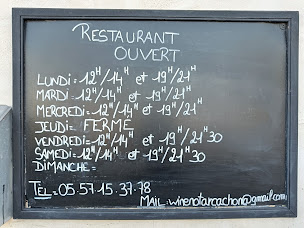 RESTAURANT
OUVERT
LUNDI = 12H/14H et 19H/21H
MARDI = 12H/14H et 19H/21H
MERCREDI = 12H/14H et 19H/21H
JEUDI = FERME
VENDREDI = 12H/14H et 19H/21H30
SAMEDI = 12H/14H et 19H/21H30
DIMANCHE =
TEL = 05.57.15.37.78
MAIL: winenotarcachon@gmail.com